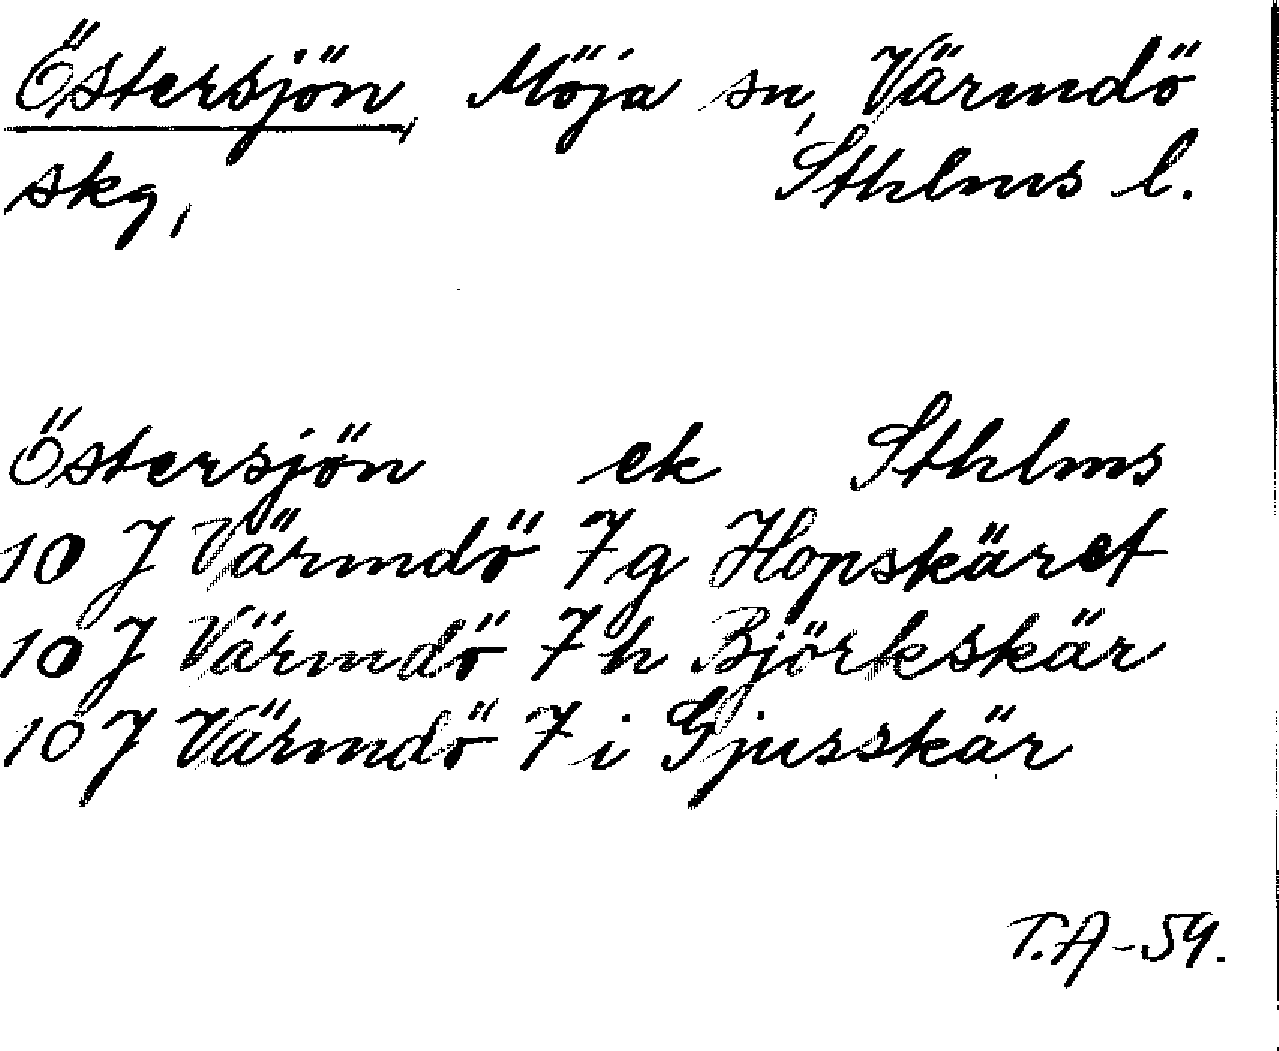 Östersjön, Möja sn, Värmdö
skg, Sthlms l.
Östersjön ek Sthlms
10 J Värmdö 7g Hopskäret
10 J Värmdö 7h Björkskär
10 J Värmdö 7i Gjusskär
T.A-59.